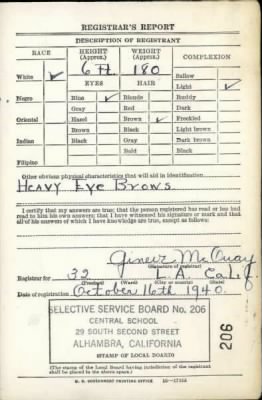 REGISTRAR'S REPORT
DESCRIPTION OF REGISTRANT
RACE HEIGHT (Approx.) WEIGHT (Approx.) COMPLEXION
6 Ft. 180 Sallow
White ✓ EYES HAIR Light ✓
Negro Blue ✓ Blonde Ruddy
Gray Red Dark
Oriental Hazel Brown ✓ Freckled
Brown Black Light brown
Indian Black Gray Dark brown
Bald Black
Filipino
Other obvious physical characteristics that will aid in identification
Heavy Eye Brows
I certify that my answers are true; that the person registered has read or has had
read to him his own answers; that I have witnessed his signature or mark and that
all of his answers of which I have knowledge are true, except as follows:
McQuay
(Signature of registrar)
Registrar for 32 L.A. Calif.
(Precinct) (Ward) (City or county) (State)
Date of registration October 16th 1940.
SELECTIVE SERVICE BOARD No. 206
CENTRAL SCHOOL
29 SOUTH SECOND STREET
ALHAMBRA, CALIFORNIA
(STAMP OF LOCAL BOARD)
206
(The stamp of the Local Board having jurisdiction of the registrant
shall be placed in the above space.)
U. S. GOVERNMENT PRINTING OFFICE